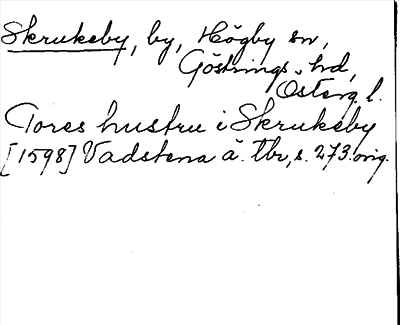 Skrukeby, by, Högby sn,
Göstrings hd,
Österg. l.
Tores hustru i Skrukeby
[1598] Vadstena ä. tbr, s. 273. orig.